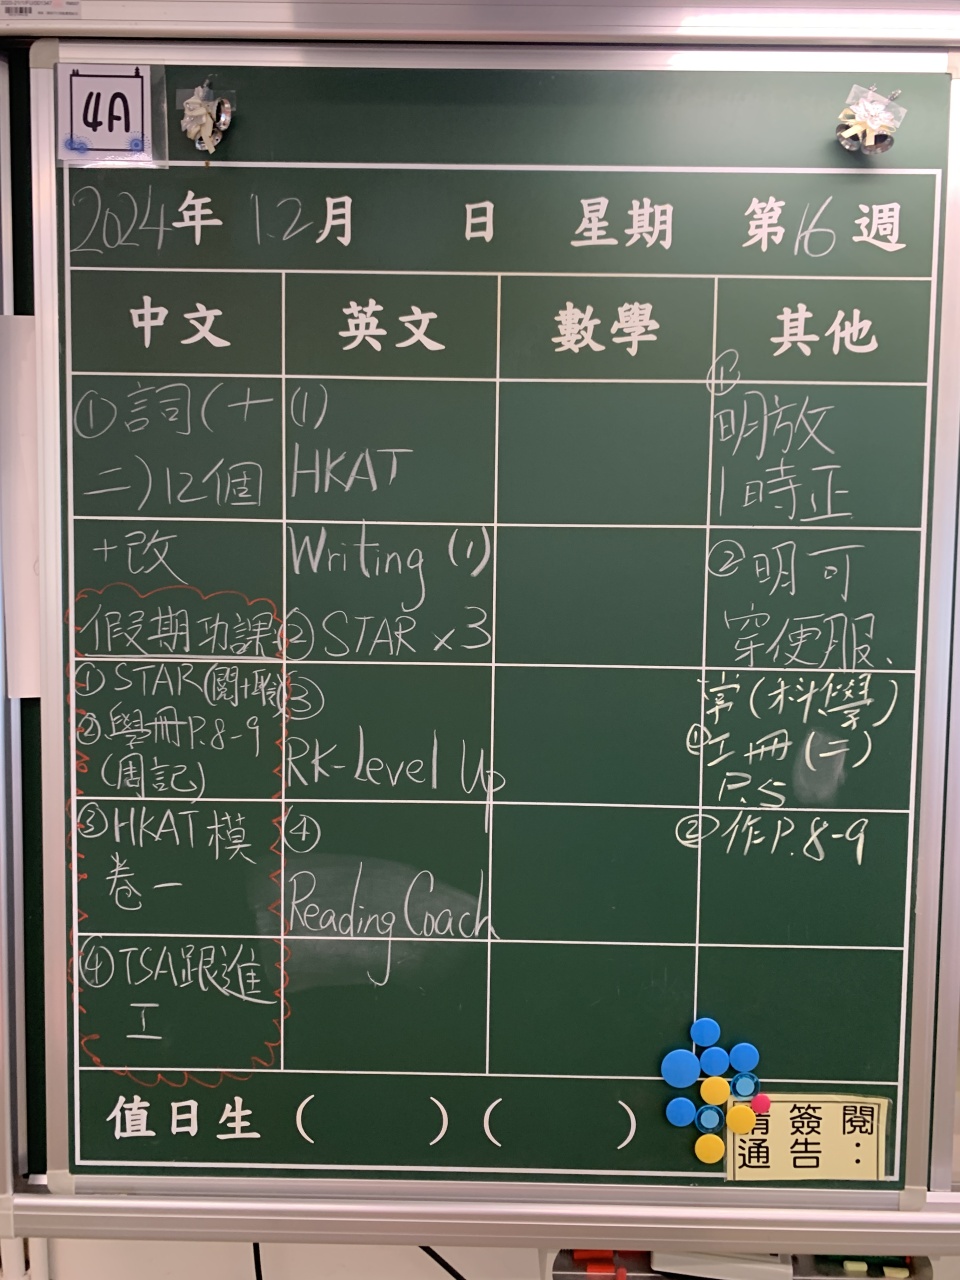 4A
2024年 12月 日 星期 第16週
中文 英文 數學 其他
①詞(十
二)12個
+改
假期功課
①STAR(閱+聆)
②學冊P.8-9
(周記)
③HKAT模
卷一
④TSA跟進
工
(1)
HKAT
Writing (1)
②STAR x3
③
RK-Level Up
④
Reading Coach
①
明放
1時正
②明可
穿便服、
常(科學)
①工冊(二)
P.5
②作P.8-9
值日生 ( ) ( )
請簽閱
通告: